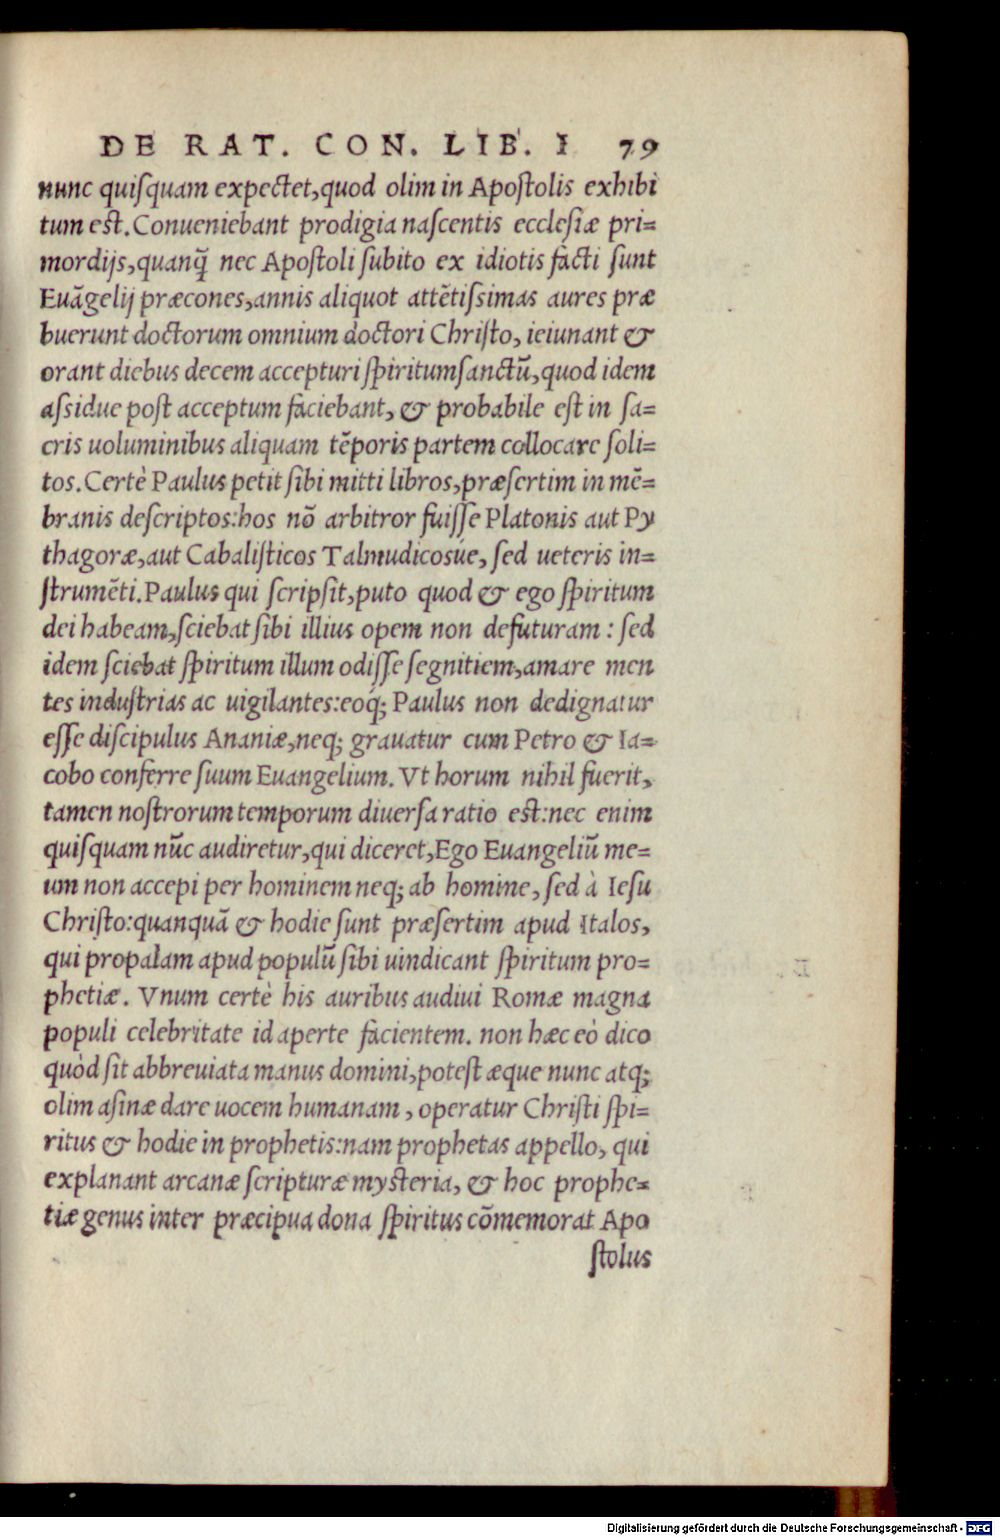 DE RAT. CON. LIB. I 79
nunc quiſquam expectet,quod olim in Apoſtolis exhibi
tum eſt.Conueniebant prodigia naſcentis eccleſiæ pri=
mordijs,quanq̃ nec Apoſtoli ſubito ex idiotis facti ſunt
Euãgelij præcones,annis aliquot attẽtiſsimas aures præ
buerunt doctorum omnium doctori Chriſto, ieiunant &
orant diebus decem accepturi ſpiritumſanctũ,quod idem
aſsidue poſt acceptum faciebant, & probabile eſt in ſa=
cris uoluminibus aliquam tẽporis partem collocare ſoli=
tos.Certè Paulus petit ſibi mitti libros,præſertim in mẽ=
branis deſcriptos:hos nõ arbitror fuiſſe Platonis aut Py
thagoræ,aut Cabaliſticos Talmudicosúe, ſed ueteris in=
ſtrumẽti.Paulus qui ſcripſit,puto quod & ego ſpiritum
dei habeam,ſciebat ſibi illius opem non defuturam : ſed
idem ſciebat ſpiritum illum odiſſe ſegnitiem,amare men
tes induſtrias ac uigilantes:eoq́; Paulus non dedignatur
eſſe diſcipulus Ananiæ,neq; grauatur cum Petro & Ia=
cobo conferre ſuum Euangelium. Vt horum nihil fuerit,
tamen noſtrorum temporum diuerſa ratio eſt:nec enim
quiſquam nũc audiretur,qui diceret,Ego Euangeliũ me=
um non accepi per hominem neq; ab homine, ſed à Ieſu
Chriſto:quanquã & hodie ſunt præſertim apud Italos,
qui propalam apud populũ ſibi uindicant ſpiritum pro=
phetiæ. Vnum certè his auribus audiui Romæ magna
populi celebritate id aperte facientem. non hæc eò dico
quòd ſit abbreuiata manus domini,poteſt æque nunc atq;
olim aſinæ dare uocem humanam, operatur Chriſti ſpi=
ritus & hodie in prophetis:nam prophetas appello, qui
explanant arcanæ ſcripturæ myſteria, & hoc prophe=
tiæ genus inter præcipua dona ſpiritus cõmemorat Apo
ſtolus
Digitalisierung gefördert durch die Deutsche Forschungsgemeinschaft - DFG